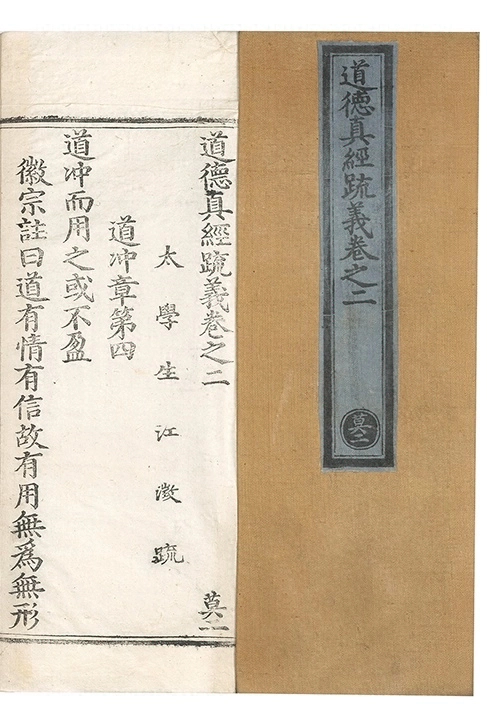 道德真經疏義卷之二
莫二
道德真經疏義卷之二
莫二
太學生江澂疏
道冲章第四
道冲而用之或不盈
徽宗註曰道有情有信故有用無爲無形